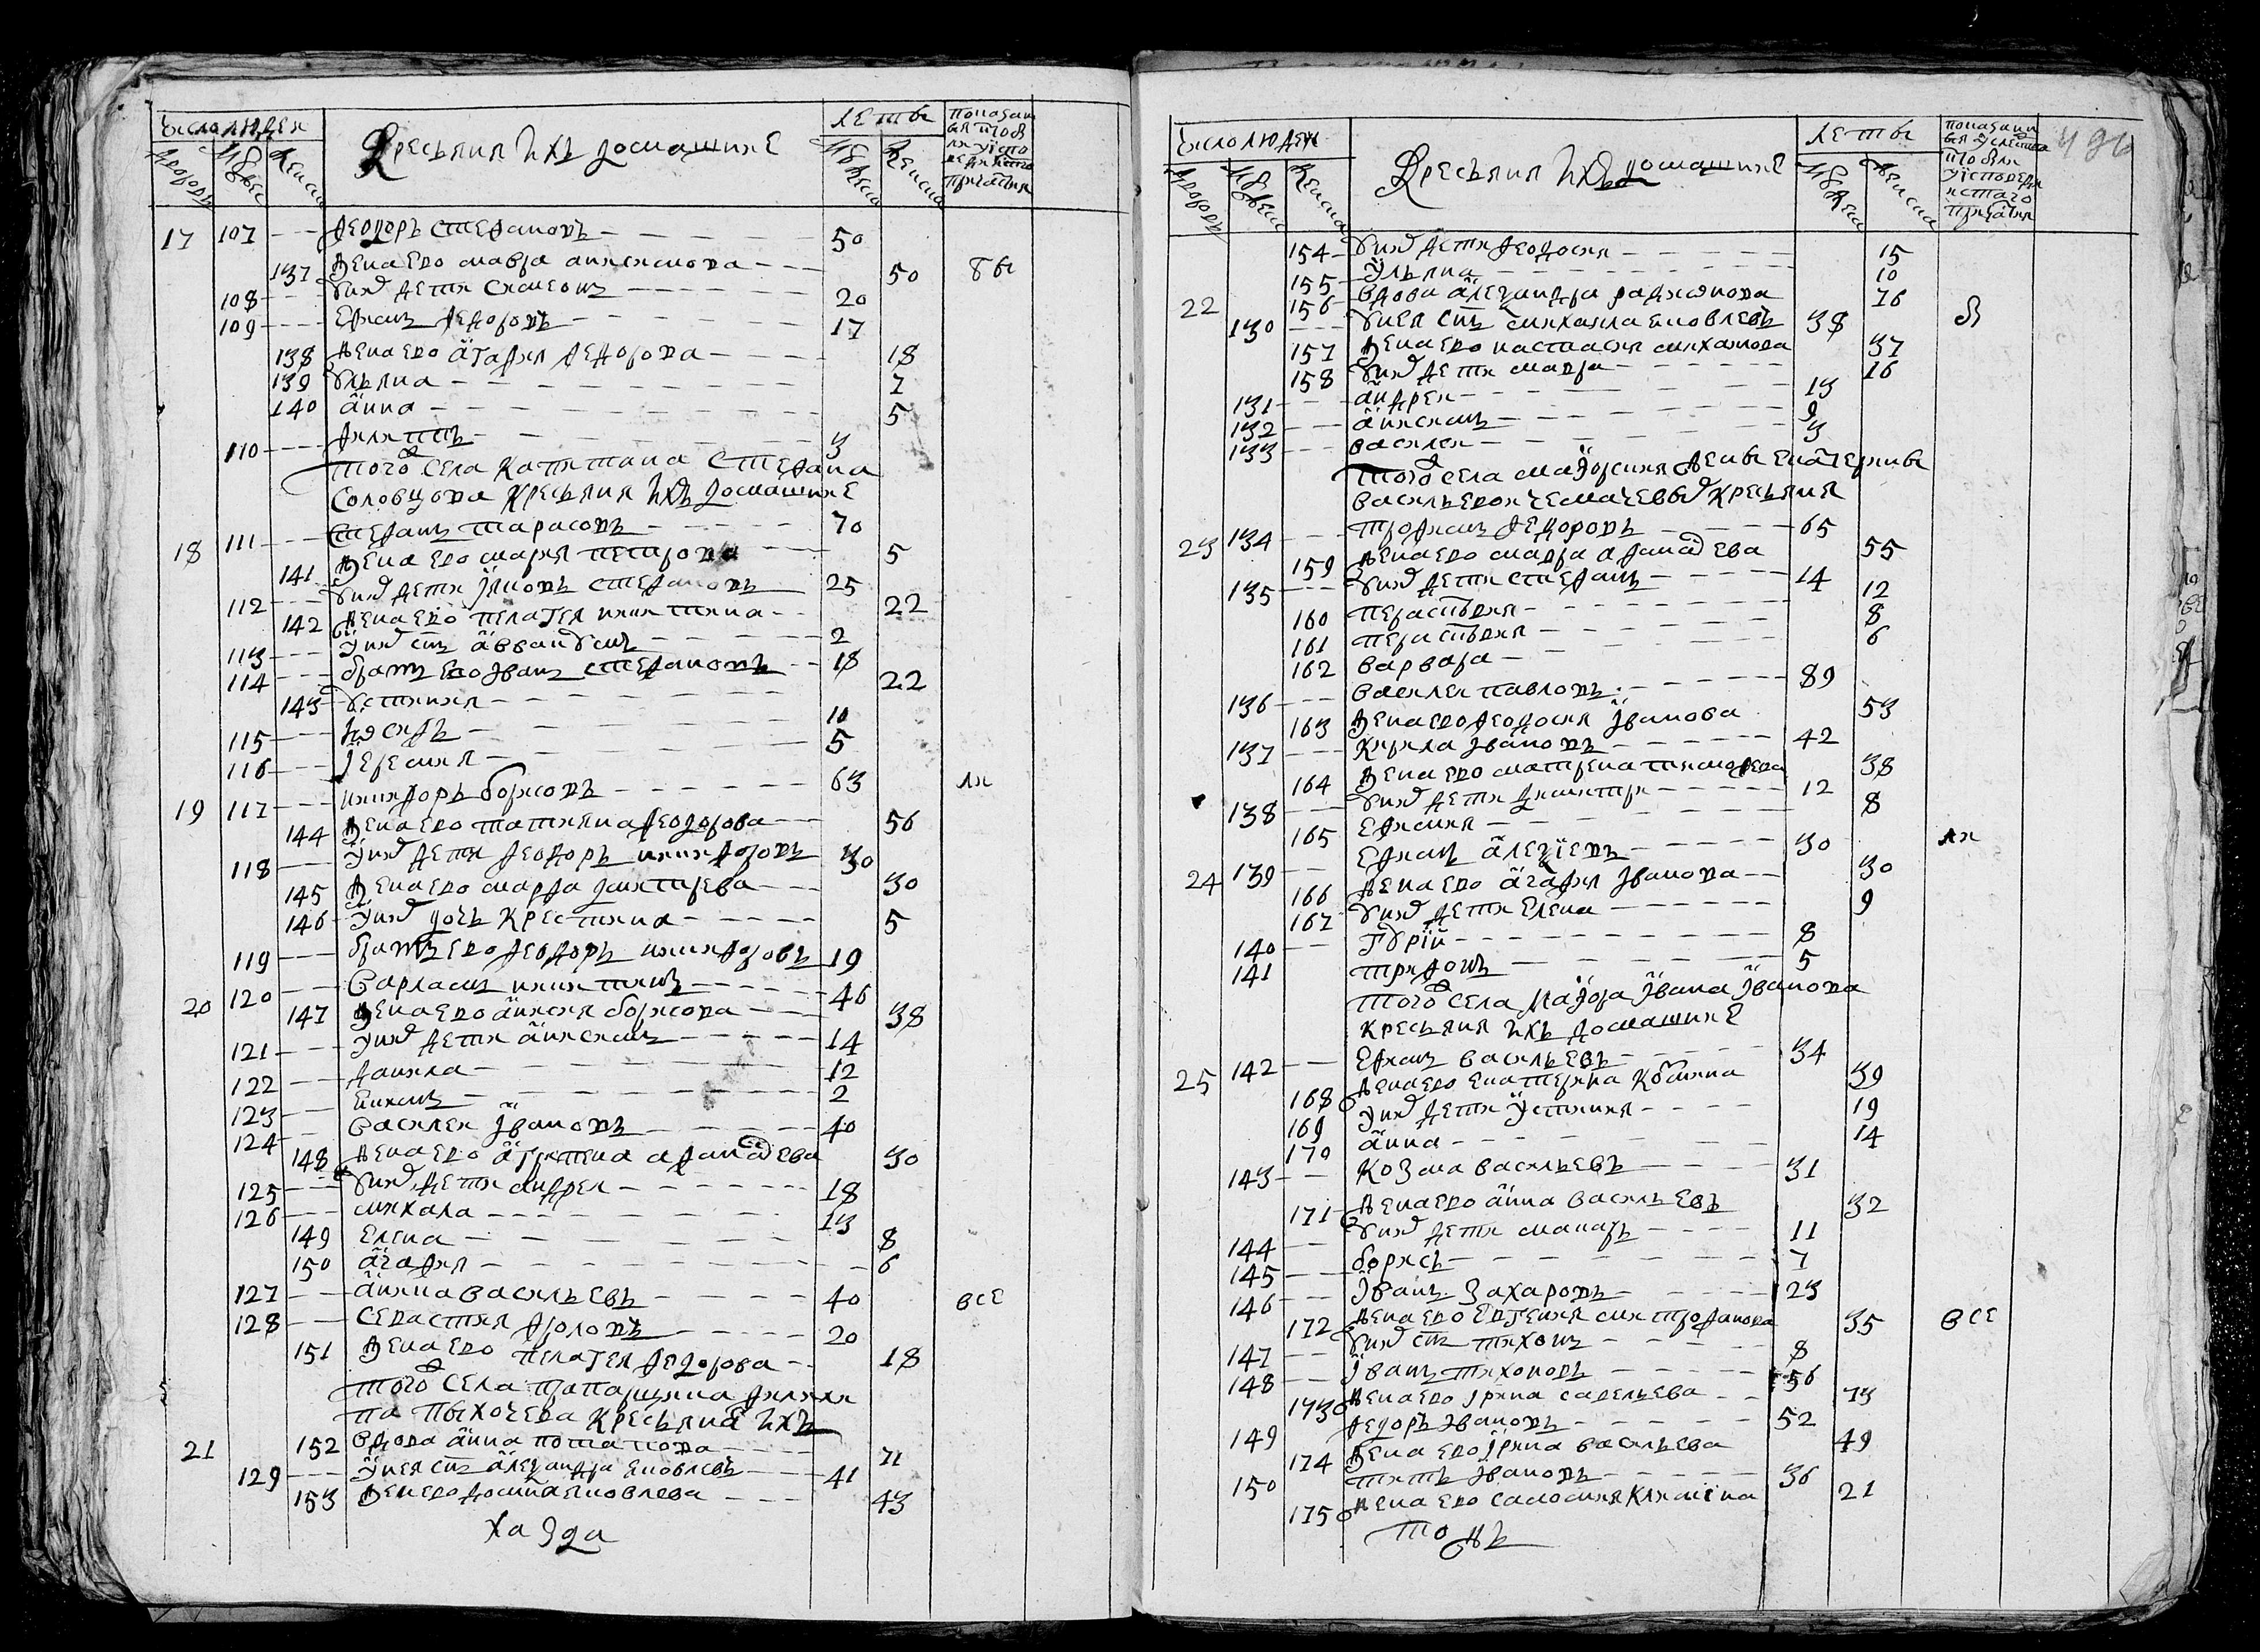 число людей
дворовъ
мужеск
женска
Крестьяня ихъ домашние
лета
мужеска
женска
17 107 --- Ѳеодоръ Стефановъ - 50
137 Жена ево Мавра Анисимова --- 50 бы
108 --- У них дети Симеонъ --- 20
109 --- Ефимъ Федоровъ --- 17
138 Жена ево Агафия Федорова --- 18
139 Ульяна --- 7
140 Анна --- 5
110 --- Филиппъ --- 3
Того села капитана Стефана
Соловцова крестьяня ихъ домашние
18 111 --- Стефанъ Тарасовъ --- 70
141 Жена ево Мария Петрова --- 5
112 --- У них дети Яковъ Стефановъ 25
142 Жена ево Пелагея Никитина -- 22
113 --- У них сынъ Аввакумъ --- 2
114 --- Братъ ево Иванъ Стефановъ -- 18
143 Устиния --- 22
115 --- Иосифъ --- 10
116 --- Иеремия --- 5
19 117 --- Никифоръ Борисовъ --- 63 ли
144 Жена ево Татияна Феодорова --- 56
118 --- У них дети Феодоръ Никифоровъ 30
145 Жена ево Марфа Дмитрева --- 30
146 У них дочь Крестина --- 5
119 --- Братъ ево Феодоръ Никифоровъ 19
20 120 --- Варламъ Никитинъ --- 46
147 Жена ево Анисия Борисова --- 38
121 --- У них дети Анисимъ --- 14
122 --- Данила --- 12
123 --- --- 2
124 --- Василеи Ивановъ --- 40
148 Жена ево Агрипена Афанасева 30
125 --- У них дети Андреи --- 18
126 --- Михаила --- 13
149 Елена --- 8
150 Агафия --- 6
127 --- Аникиа Васильевъ --- 40 все
128 --- Севастиян Фроловъ --- 20
151 Жена ево Пелагея Федорова -- 18
Того села прапорщика Фили
па Пыхочева крестьяня ихъ
21 152 Вдова Анна Потапова --- 71
129 --- У нея сынъ Александра Яковлевъ --- 41
153 Жена ево Домна Яковлева --- 43
число людей
дворовъ
мужеск
женска
Крестьяня ихъ домашние
лета
мужеска
женска
154 - У них дети Феодосия --- 15
155 - Ульяна --- 10
22 156 - Вдова Александра Радионова 76
130 --- У нея сынъ Михаила Яковлевъ 38 я
157 Жена ево Настасия Михаилова 37
158 У них дети Мавра --- 16
131 --- Андреи --- 13
132 --- Анисимъ --- 9
133 --- Василеи --- 3
Того села маиорския жены Екатерины
Васильевои крестьяня
23 134 --- Трофимъ Федоровъ --- 65
159 Жена ево Мавра Афанасева 55
135 --- У них дети Стефанъ --- 14
160 Перасковия --- 12
161 Перасковия --- 8
162 Варвара --- 6
136 --- Василеи Павловъ --- 89
163 Жена ево Феодосия Иванова 53
137 --- Кирила Ивановъ --- 42
164 Жена ево Матрена Тимофева 38
138 --- У них дети Димитри --- 12
165 Ефимия --- 8
24 139 -- Ефимъ Алексиевъ --- 30 ли
166 Жена ево Агафия Иванова -- 30
167 У них дети Елена --- 9
140 -- Гурий --- 8
141 Трифонъ --- 5
Того села маиора Ивана Иванова
крестьяня ихъ домашние
25 142 -- Ефимъ Васильевъ --- 34
168 Жена ево Екатерина Кузмина 39
169 У них дети Устиния --- 19
170 Анна --- 14
143 -- Козма Васильевъ --- 31
171 Жена ево Анна Васильевъ 32
144 -- У них дети Макаръ --- 11
145 -- Борисъ --- 7
146 -- Иванъ Захаровъ --- 23
172 Жена ево Евгения Митрофанова 35 все
147 -- У них сынъ Тихонъ --- 8
148 -- Иванъ Тихоновъ --- 56
173 Жена ево Ирина Савельева -- 73
149 Федоръ Ивановъ --- 52
174 Жена ево Ирина Васильева 49
150 Титъ Ивановъ --- 36
175 Жена ево Саломия 21
тожъ